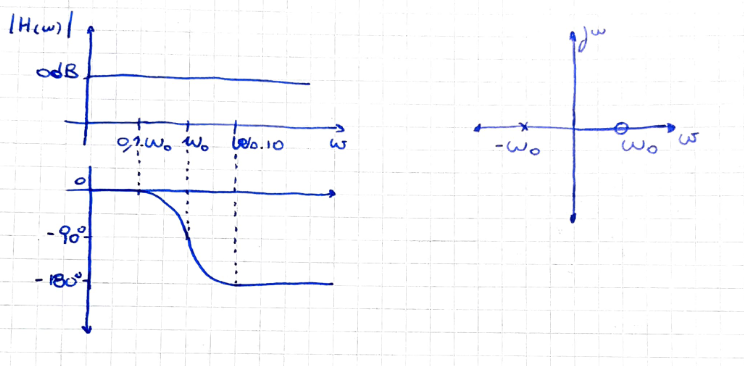 |H(ω)|
0dB
0,1.ω₀ ω₀ ω₀.10 ω
0
-90°
-180°
jω
-ω₀ ω₀ ω